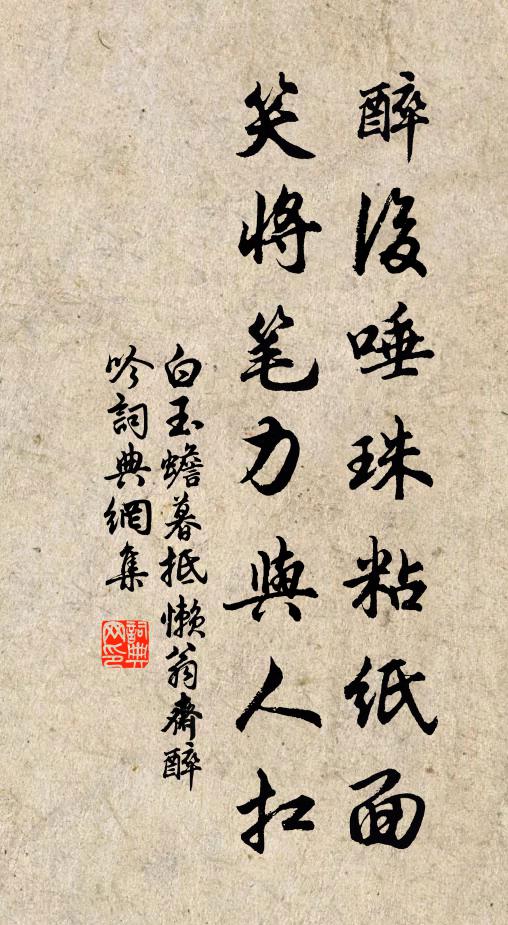 醉後唾珠粘纸面
笑將笔力與人扛
白玉蟾暮抵懒翁齋醉
吟詞典網集
詞典
网印